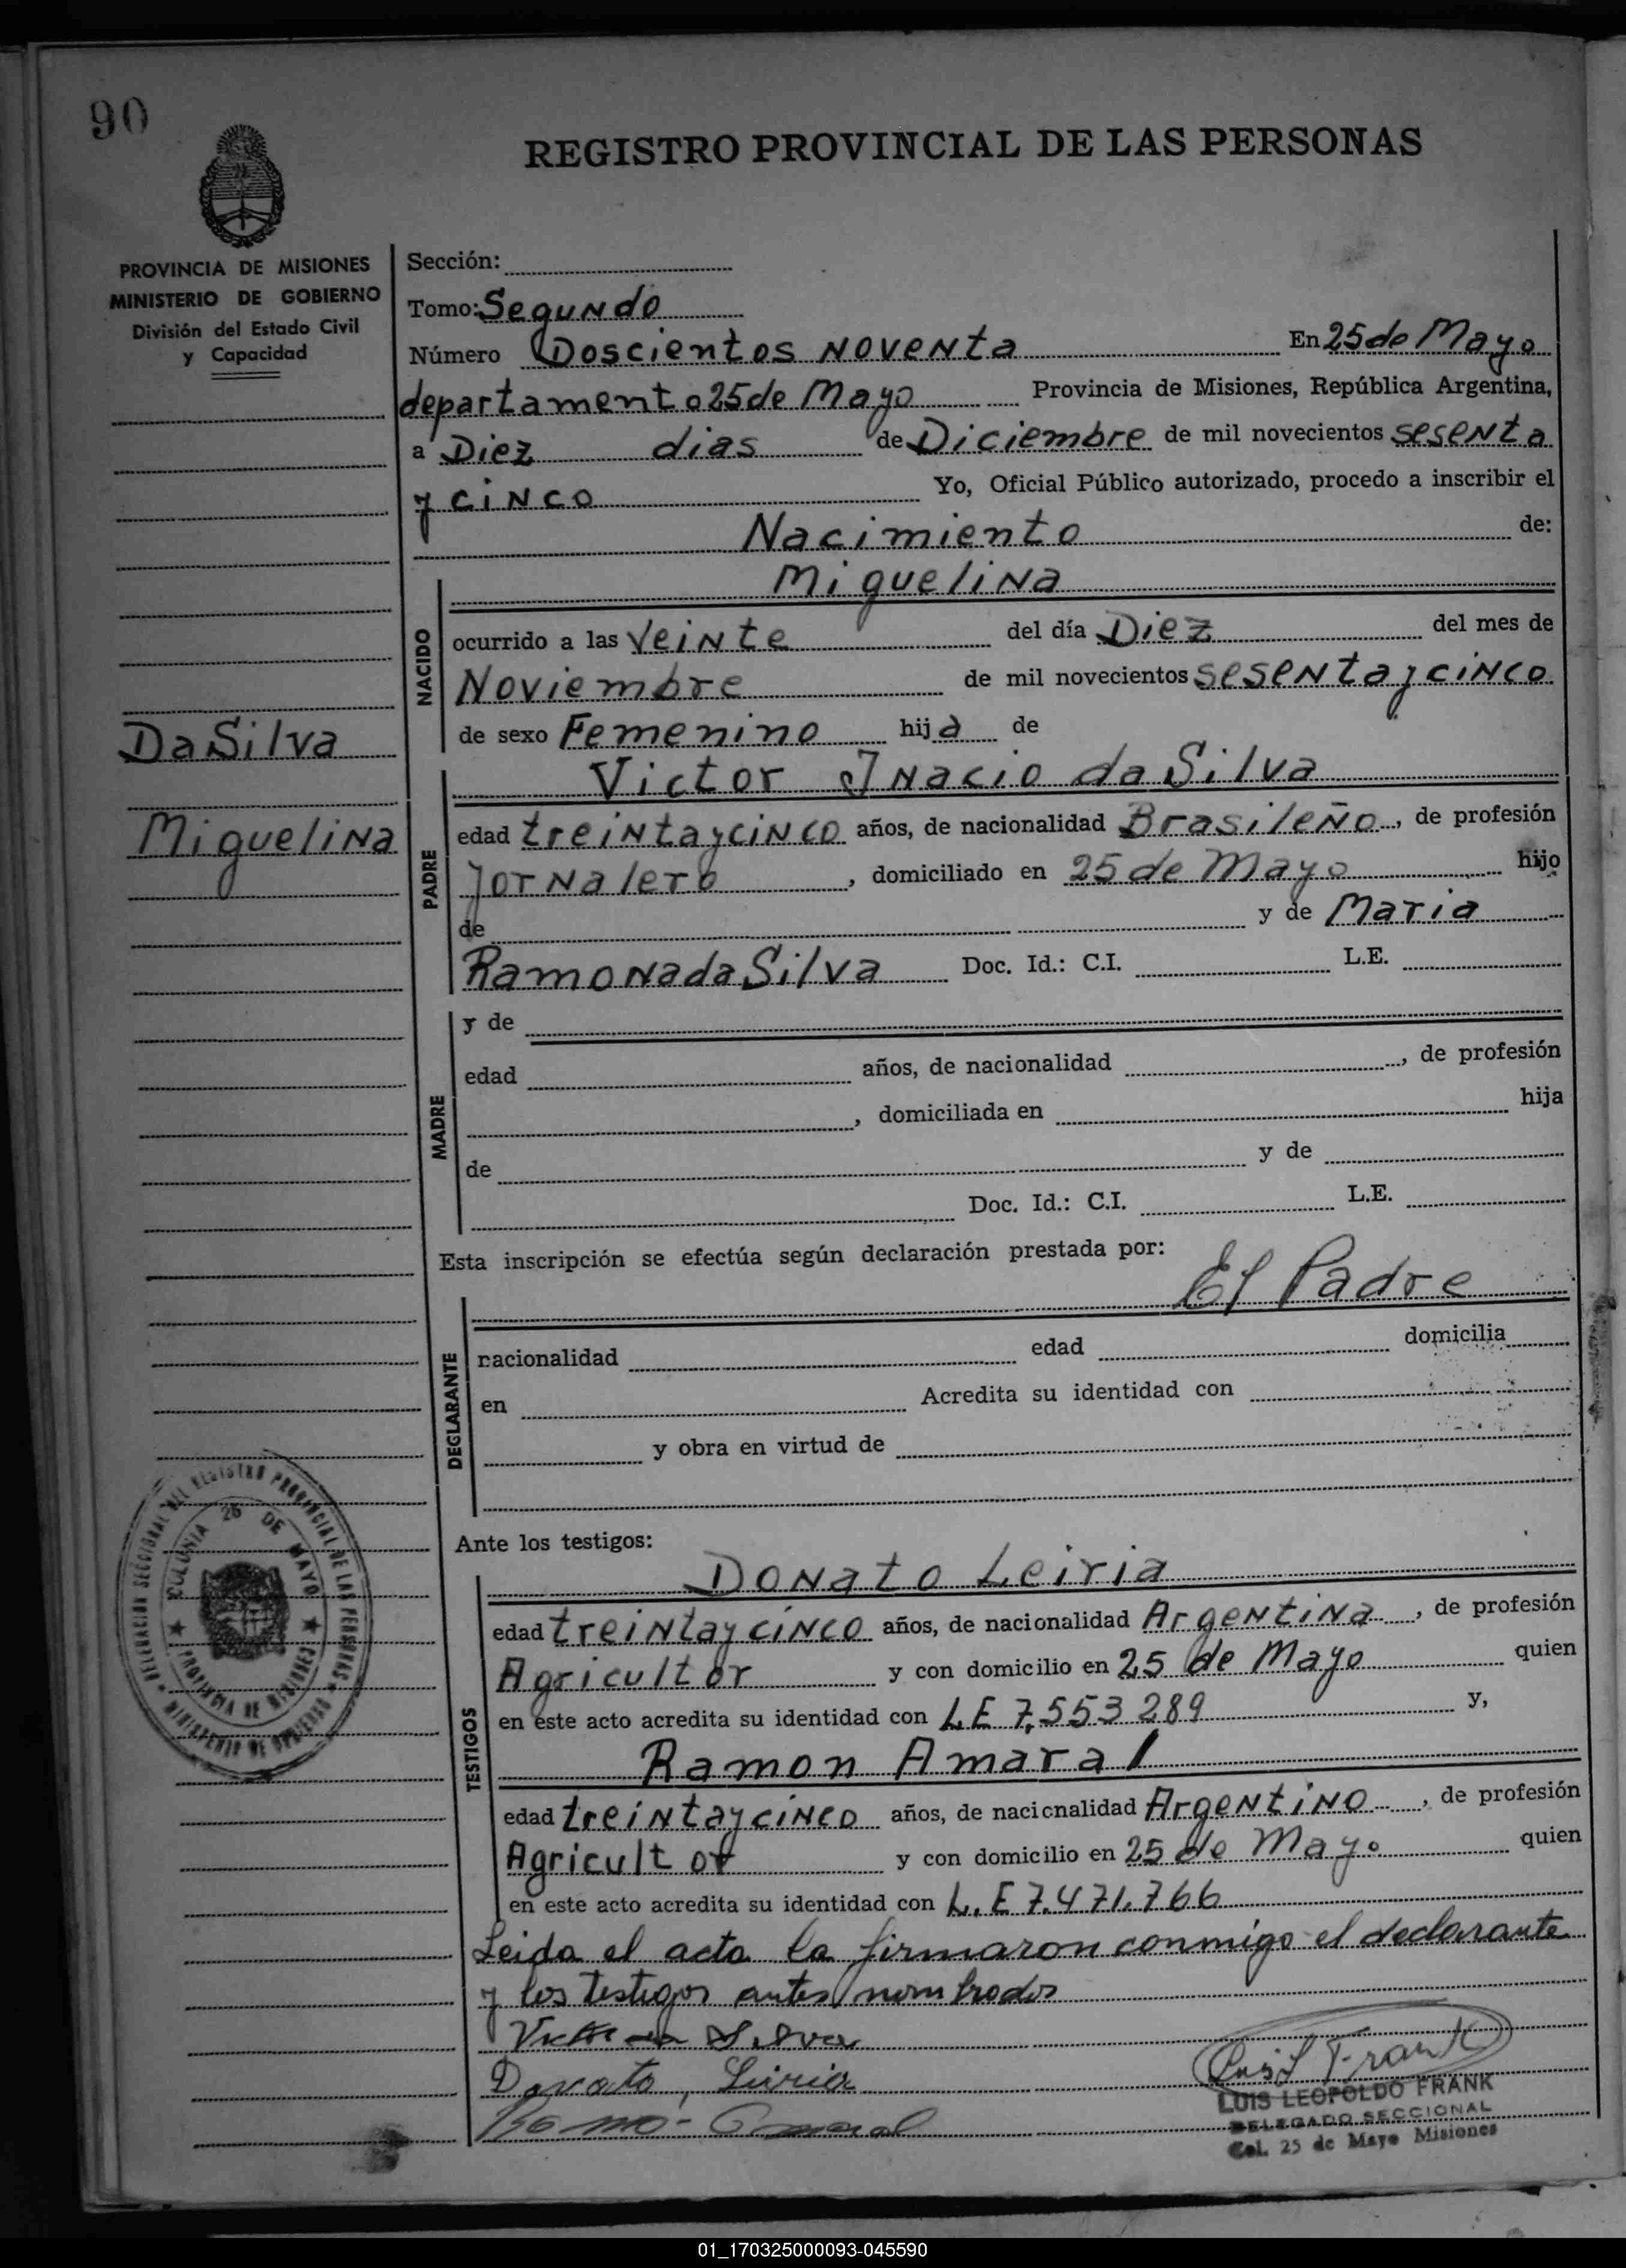 90
REGISTRO PROVINCIAL DE LAS PERSONAS
PROVINCIA DE MISIONES
MINISTERIO DE GOBIERNO
División del Estado Civil
y Capacidad
Sección:
Tomo: Segundo
Número Doscientos Noventa En 25 de Mayo
departamento 25 de Mayo Provincia de Misiones, República Argentina,
a Diez dias de Diciembre de mil novecientos sesenta
y cinco Yo, Oficial Público autorizado, procedo a inscribir el
Nacimiento de:
Miguelina
NACIDO
ocurrido a las Veinte del día Diez del mes de
Noviembre de mil novecientos sesenta y cinco
de sexo Femenino hija de
Da Silva
Miguelina
Victor Inacio da Silva
PADRE
edad treinta y cinco años, de nacionalidad Brasileño, de profesión
Jornalero, domiciliado en 25 de Mayo hijo
de y de Maria
Ramona da Silva Doc. Id.: C.I. L.E.
MADRE
y de
edad años, de nacionalidad , de profesión
, domiciliada en hija
de y de
Doc. Id.: C.I. L.E.
Esta inscripción se efectúa según declaración prestada por:
El Padre
DECLARANTE
nacionalidad edad domicilia
en Acredita su identidad con
y obra en virtud de
DELEGACION SECCIONAL DEL REGISTRO PROVINCIAL DE LAS PERSONAS
MINISTERIO DE GOBIERNO
COLONIA 25 DE MAYO
PROVINCIA DE MISIONES
Ante los testigos:
Donato Leiria
TESTIGOS
edad treinta y cinco años, de nacionalidad Argentina, de profesión
Agricultor y con domicilio en 25 de Mayo quien
en este acto acredita su identidad con L.E 7.553 289 y,
Ramon Amaral
edad treinta y cinco años, de nacionalidad Argentino, de profesión
Agricultor y con domicilio en 25 de Mayo quien
en este acto acredita su identidad con L.E 7.471.766
Leida el acta la firmaron conmigo el declarante
y los testigos antes nombrados
Donato Leiria
Luis L Frank
LUIS LEOPOLDO FRANK
DELEGADO SECCIONAL
Col. 25 de Mayo Misiones
01_170325000093-045590